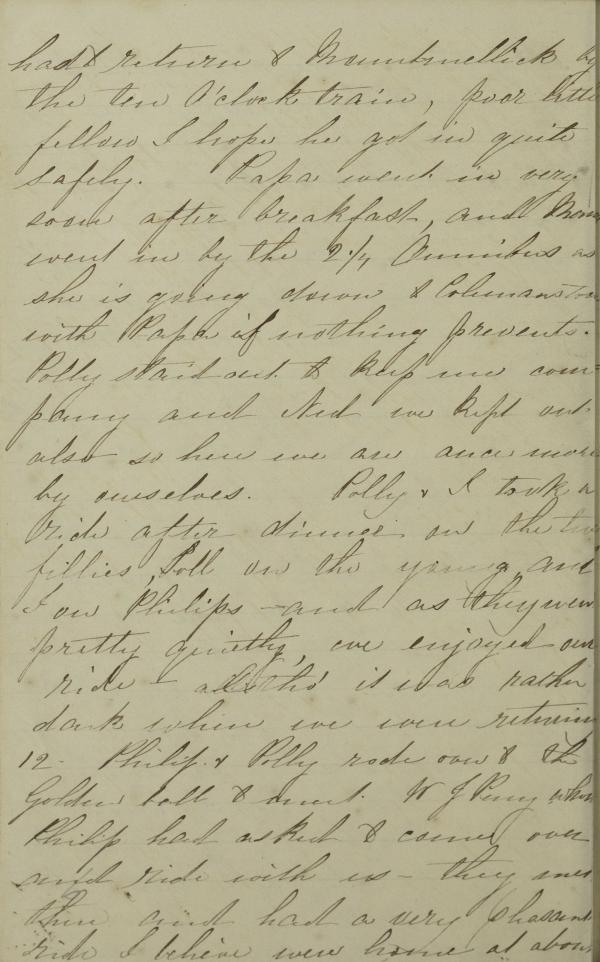 had to return to Mountmellick by
the ten O'clock train, poor little
fellow I hope he got in quite
safely. Papa went in very
soon after breakfast, and Mama
went in by the 2¼ Omnibus as
she is going down to Colemans
with Papa if nothing prevents.
Polly staid out to keep me com-
pany and Ned we kept out
also so here we are once more
by ourselves. Polly & I took a
ride after dinner on the two
fillies, Poll on the young and
I on Philips - and as they went
pretty quietly, we enjoyed our
ride - altho' it was rather
dark when we were returning
12. Philip & Polly rode over to the
Golden ball to meet W J Perry whom
Philip had asked to come over
and ride with us - they met
there and had a very pleasant
ride I believe were home at about